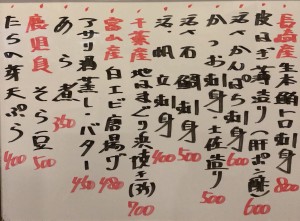 長崎産生本鮪トロ刺身 800
皮はぎ薄造り(肝ポン酢) 600
活〆かんぱち刺身 600
かつお刺身・土佐造り 500
活〆石鯛刺身 500
活〆帆立刺身 400
千葉産地はまぐり浜焼き(3ヶ) 700
富山産白エビ唐揚げ 480
アサリ酒蒸し・バター 450
あら煮 350
鹿児島そら豆 500
たらの芽天ぷら 400